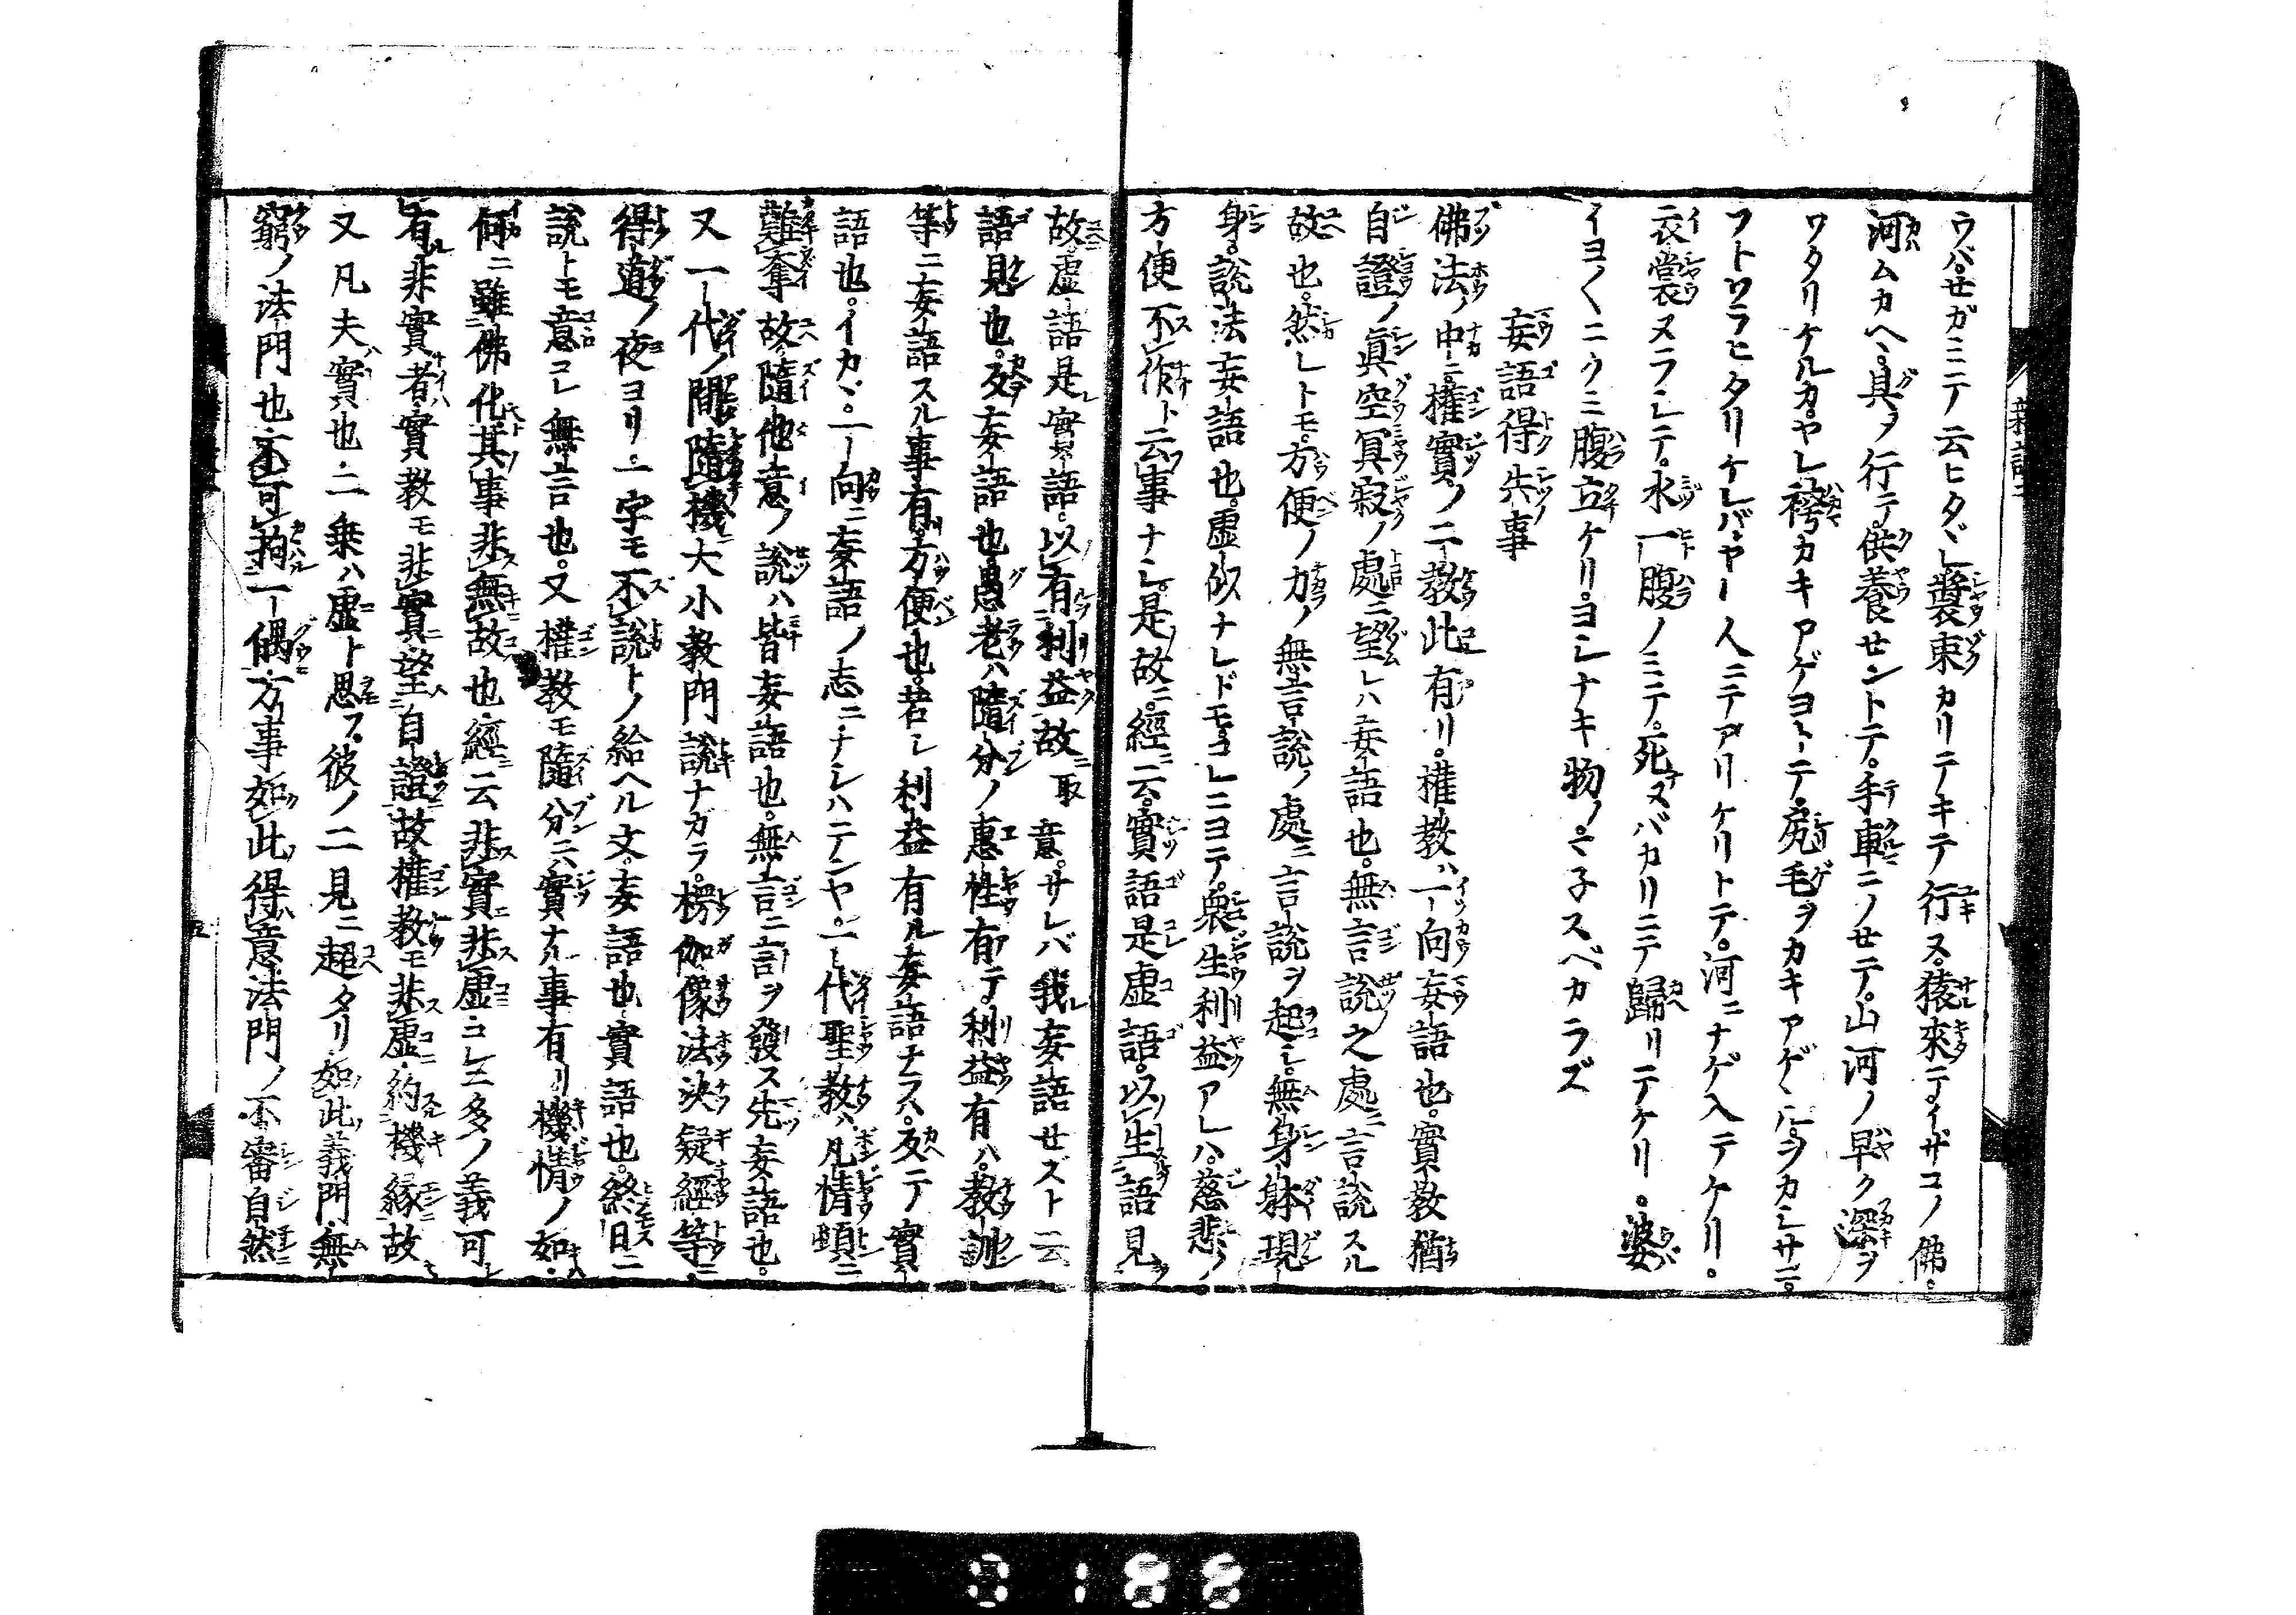 ウバ。せガミニテ云ヒタヾレ裝束カリニテキテ行ヌ。猿來テイザコノ佛。
河ムカヘ。具ヲ行テ。供養せントテ。手車ニノせテ。山河ノ早ク深ヲ
ワタリケルカ。ヤレ袴カキアゲヨトテ。尻毛ヲカキアゲヽル。ヲカシサニ。
フトワラヒタリケレバ。ヤー人ニテアリケリトテ。河ニナゲ入テケリ。
衣裳ヌラシテ。水一腹ノミテ。死ヌバカリニテ歸リテケリ。婆
イヨ〱ニクミ腹立ケリ。ヨシナキ物ノマ子スベカラズ
妄語得失事
佛法ノ中ニ。權實ノ二教此有リ。權教ハ一向妄語也。實教猶
自證ノ眞空冥寂ノ處ニ望レハ妄語也。無言說之處ニ言說スル
故也。然レトモ。方便ノ力ノ無言說ノ處ニ言說ヲ起シ。無身躰現
身。說法妄語也。虛似ナレドモ。コレニヨテ。衆生利益アレハ。慈悲ノ
方便不作ト云事ナシ。是故ニ。經ニ云。實語是虛語。以生語見
故。虛語是實語。以有利益故 取意。サレバ我妄語せズト云
語見也。反妄語也。愚老ハ隨分ノ惠性有テ。利益有ハ。教訓
等ニ妄語スル事有。方便也。若シ利益有ル妄語ナスハ。反テ實
語也。イカヾ。一向ニ妄語ノ志ニナシハテンヤ。一代聖教ハ。凡情頭ニ
難奪故。隨他意ノ說ハ皆妄語也。無言ニ言ヲ發ス先妄語也。
又一代ノ間隨機大小教門說ナガラ。楞伽像法決疑經等ニ
得道ノ夜ヨリ。一字モ不說トノ給ヘル文。妄語也實語也。終日ニ
說トモ意コレ無言也。又權教モ隨分ニ實ナル事有リ機情ノ如。
何ニ雖佛化其事非無故也經云非實非虛コレニ多ノ義可
有非實者實教モ非實望自證故權教モ非虛約機緣故
又凡夫實也二乘ハ虛ト思フ。彼ノ二見ニ超タリ如此義門無
窮ノ法門也不可拘一偶方事如此得意法門ノ不審自然